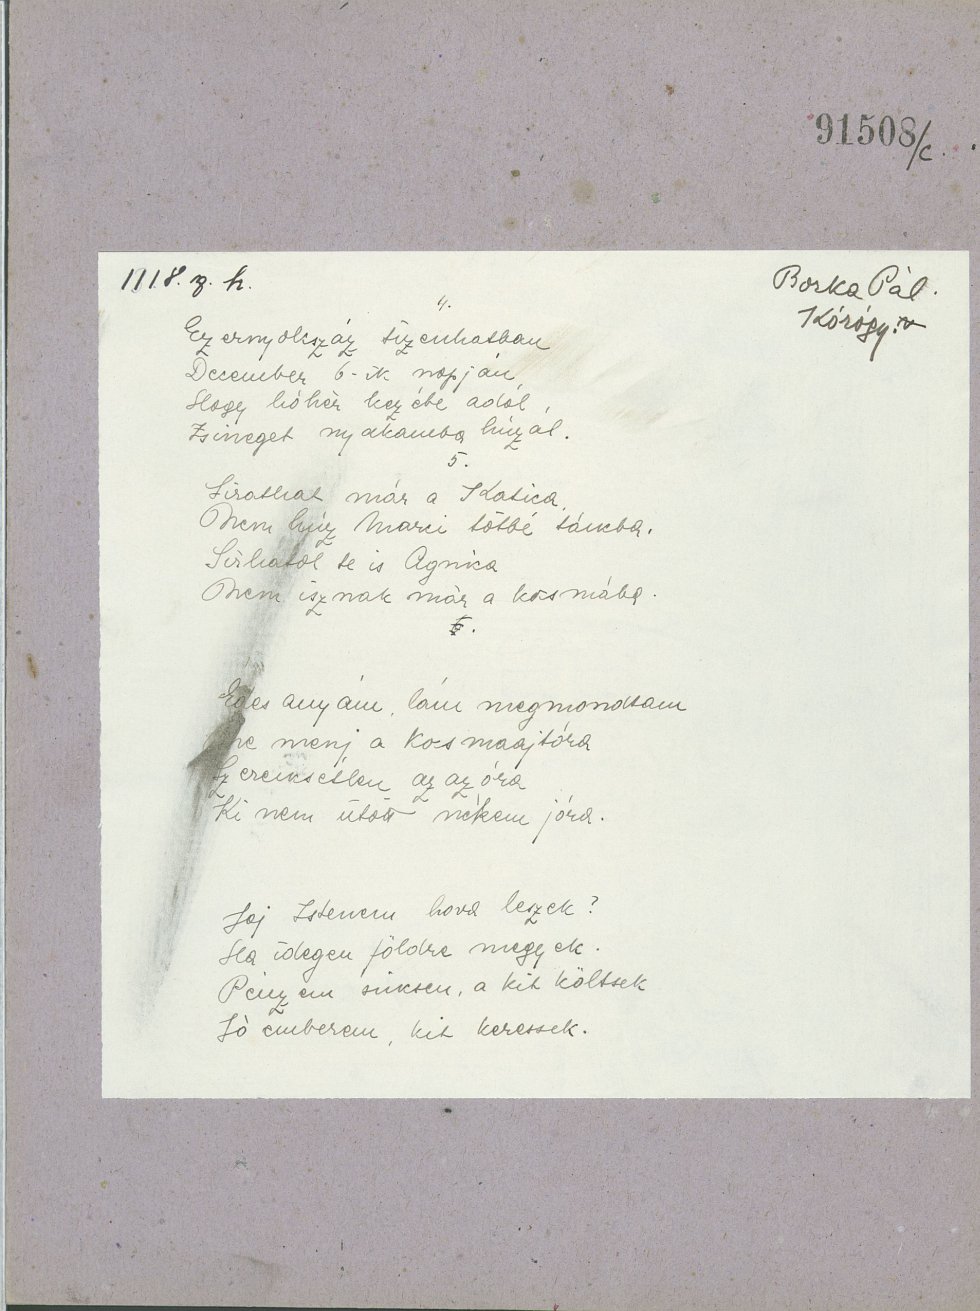 91508/c.
1118. z. h.
Borka Pál.
Kórógy.
4.
Ezernyolcszáz tizenhatban
December 6-ik napján,
Hogy hóhér kezébe adál,
Zsineget nyakamba húzál.
5.
Sirathat már a Katica,
Nem húz Marci többé táncba.
Sírhatól te is Agnica
Nem isznak már a kocsmába.
Édes anyám, lám megmondtam
ne menj a kocsmaajtóra
Szerencsétlen az az óra
Ki nem ütött nékem jóra.
Jaj Istenem hova leszek?
Ha idegen földre megyek.
Pénzem sincsen, a kit költsek
Jó emberem, kit keressek.